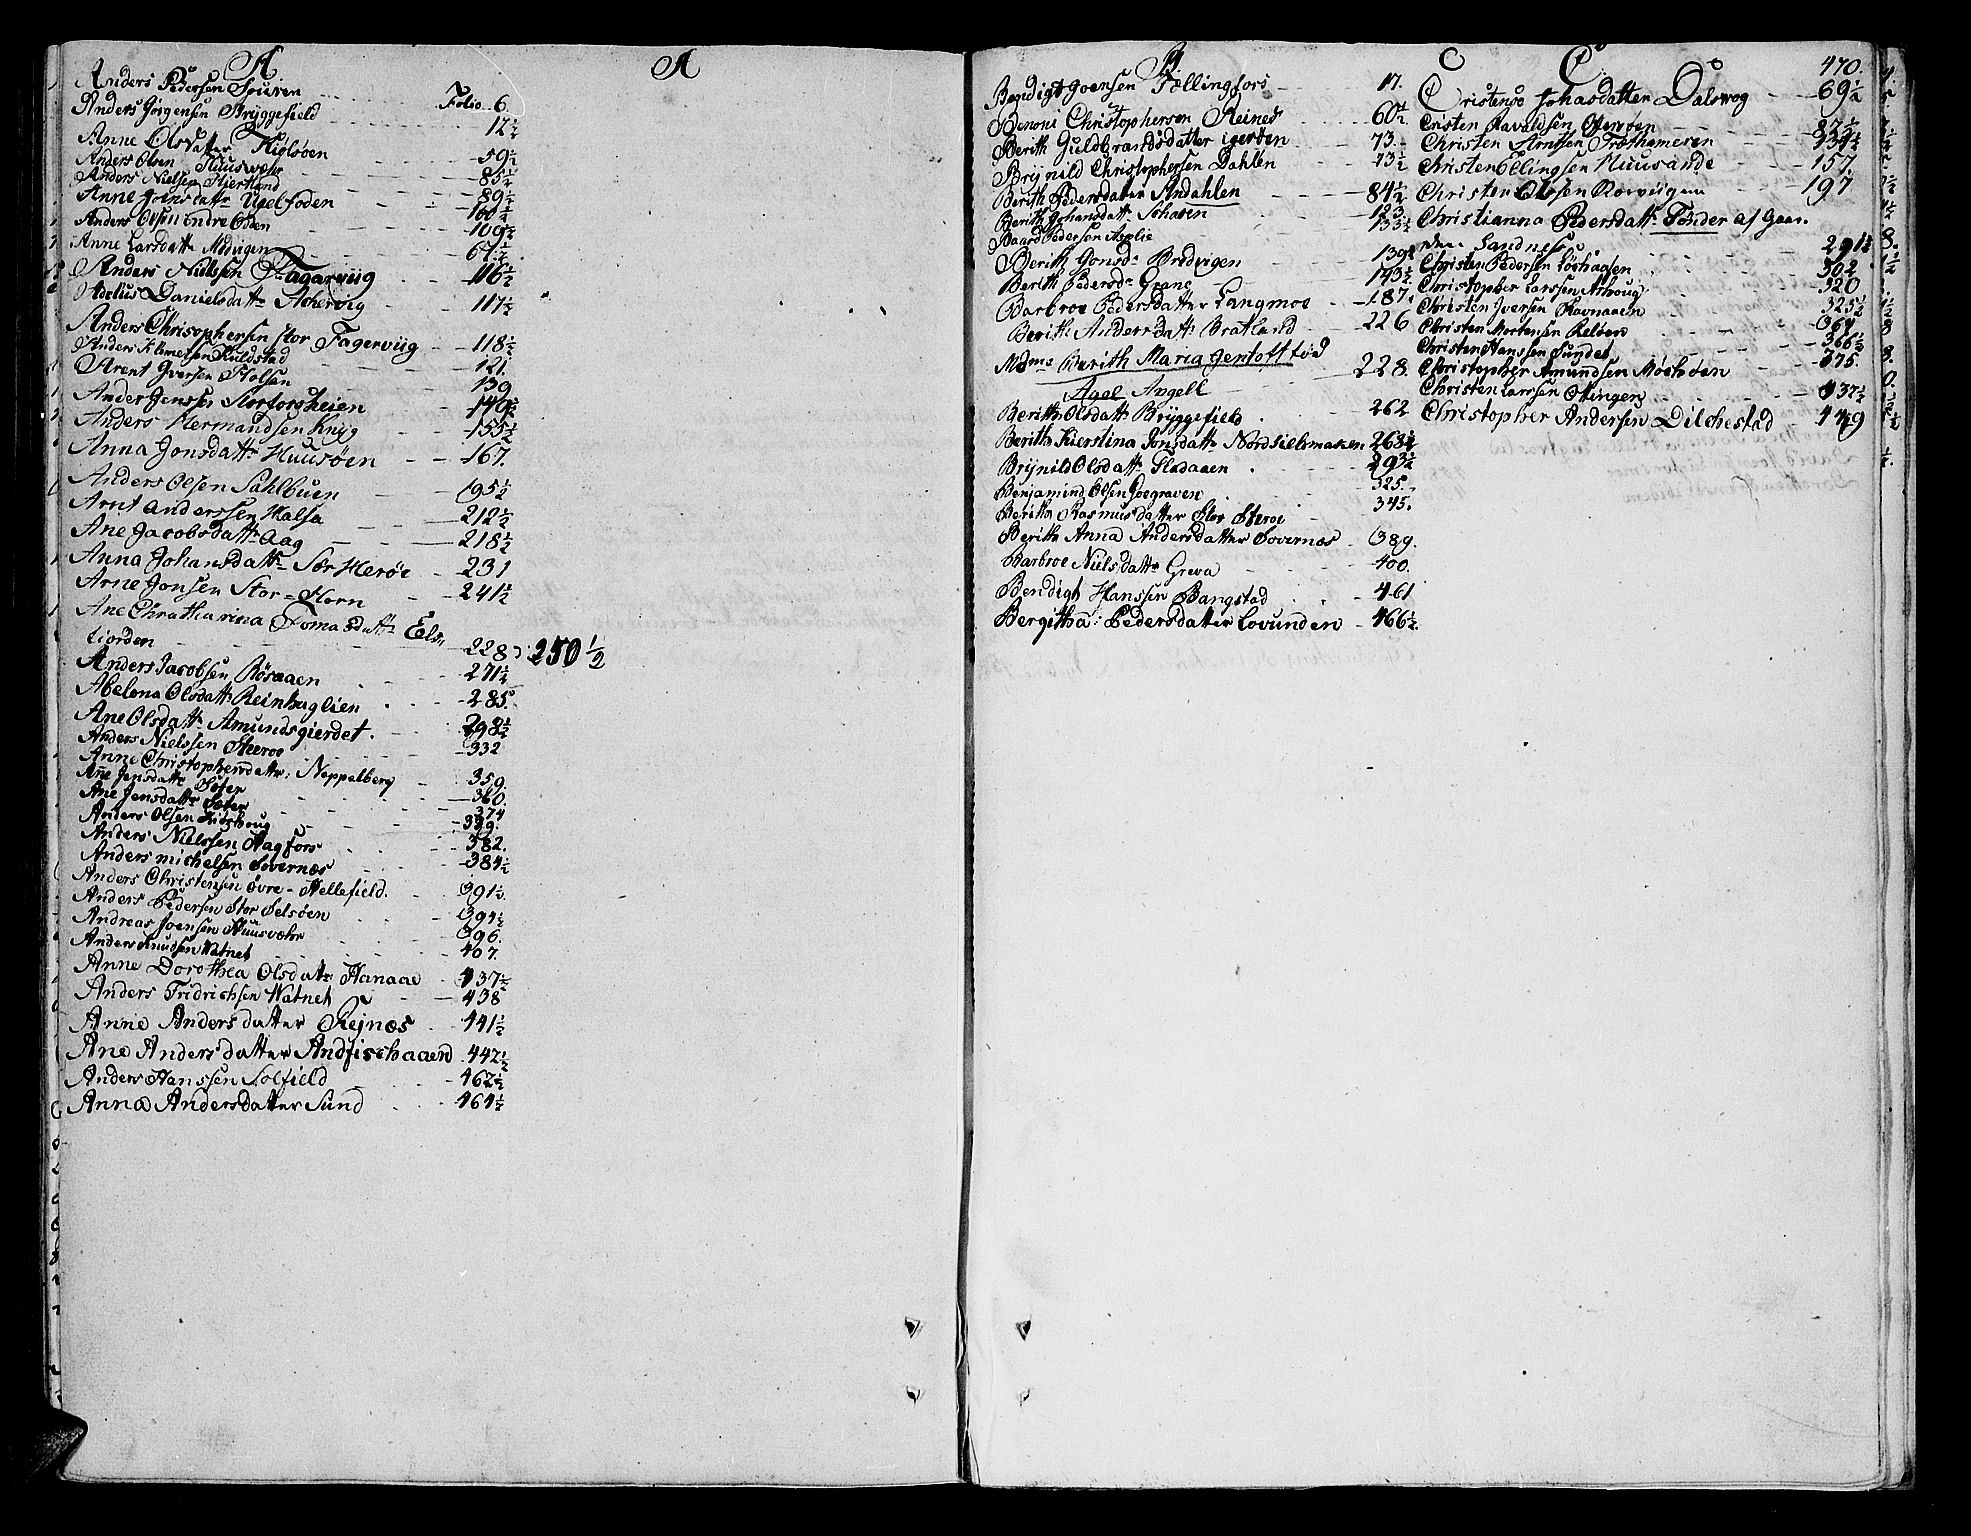 A
Anders Pedersen Souren Folio 6.
Anders Jørgensen Bryggefield 12½
Anne Olsdatter Kiglsöen 59½
Anders Olsen Huusvær 85½
Anders Nielsen Hiertland 89½
Anne Joensdattr Ugelfoden 100½
Anders Olsen indre Øen 100½
Anne Larsdattr Medvigen 67½
Anders Nielssen Fagerviig 116½
Adelus Danielsdattr Achervig 117½
Anders Chrisophersen stor Fagerviig 118½
Anders Klemetsen Kuldstad 121.
Arent Iversen Holsen 139
Ander Jenssen Storforsheien 140½
Anders Hermandsen Knyg 155½
Anna Jonsdattr Huusøen 167.
Anders Olsen Sahlbuen 195½
Arnt Anderssen Halsa 212½
Ane Jacobsdattr Aag 218½
Anna Johansdattr Sør Herøe 231
Arne Jonsen Stor-Horn 241½
Ane Chratharina Tomasdattr Els-
fiorden 228 250½
Anders Jacobsen Røsaaen 271½
Abelona Olsdattr Reinhuglien 285.
Ane Olsdattr Amundsgierdet. 298½
Anders Nielssen Steeroe 332
Anne Christophersdatter: Neppelberg 359.
Ane Jensdattr Søter 360.
Ane Jensdattr Søter 374
Anders Olsen Kirkhoug 379.
Anders Nielssen Hagfors 382.
Anders michelsen Sovernæs 384½
Anders Christensen øvre-Hellefield. 391½
Anders Pedersen Stor Selsøen 394½
Andreas Joensen Huusvær 396.
Anders Knudsen Vatnet 407.
Anne Dorothea Olsdattr Hanaae 437½
Anders Fridrichsen Vatnet 438
Anne Andersdatter Rejnæs 441½
Ane Andersdatter Andfischaaen 442½
Anders Hanssen Solfield 462½
Anna Andersdatter Sund 464½
A
B.
Bendigt Joensen Fellingfors 17.
Benoni Christophersen Reines 60½.
Berith Guldbrandsdatter igerten 73.
Brynild Christophersen Dahlen 73½
Berith Pedersdatter Andahlen 84½
Berith Johansdattr Johaven 123.
Baard Pedersen Applie 133½
Berith Jonsdr Bredvigen 139½
Berith Pedersdr Grane 143½
Barbroe Pedersdatter Langmoe 187.
Berith Andersdattr Bratland 226
Mdme Berith Maria Jentoft fød
Agel Angell 228.
Berith Olsdattr Bryggefield 262
Berith Kierstina Jonsdattr Nordsielsmaken 263½
Brynild Olsdattr Flodaaen 293½
Benjamind Olsen Soegraven 325.
Berith Rasmusdatter Stor Steroe 345.
Berith Anna Andersdatter Sovernæs 389.
Barbroe Nielsdattr Greva 400.
Bendigt Hanssen Bangstad 461
Bergitha: Pedersdatter Lovunden 466½.
C C C 470.
Cristense Johasdatter Dalsvog 69½
Cristen Havaldsen Offersøen 82½
Christen Arntsen Trothameren 134½
Christen Ellingsen Huusande 157.
Christen Olssen Rorvugen 197
Christianna Pedersdattr Tønder af Gaar-
den Sandness 291½
Christen Pedersen Løchagen 302
Christopher Larssen Ashoug 320
Christen Iversen Ravnaaen 325½
Christen Mortensen Reløen 364
Christen Hanssen Sundet 366½
Christopher Amundsen Møchøen 375.
Christen Larssen Ottingen 437½
Christopher Andersen Dilchestad 449